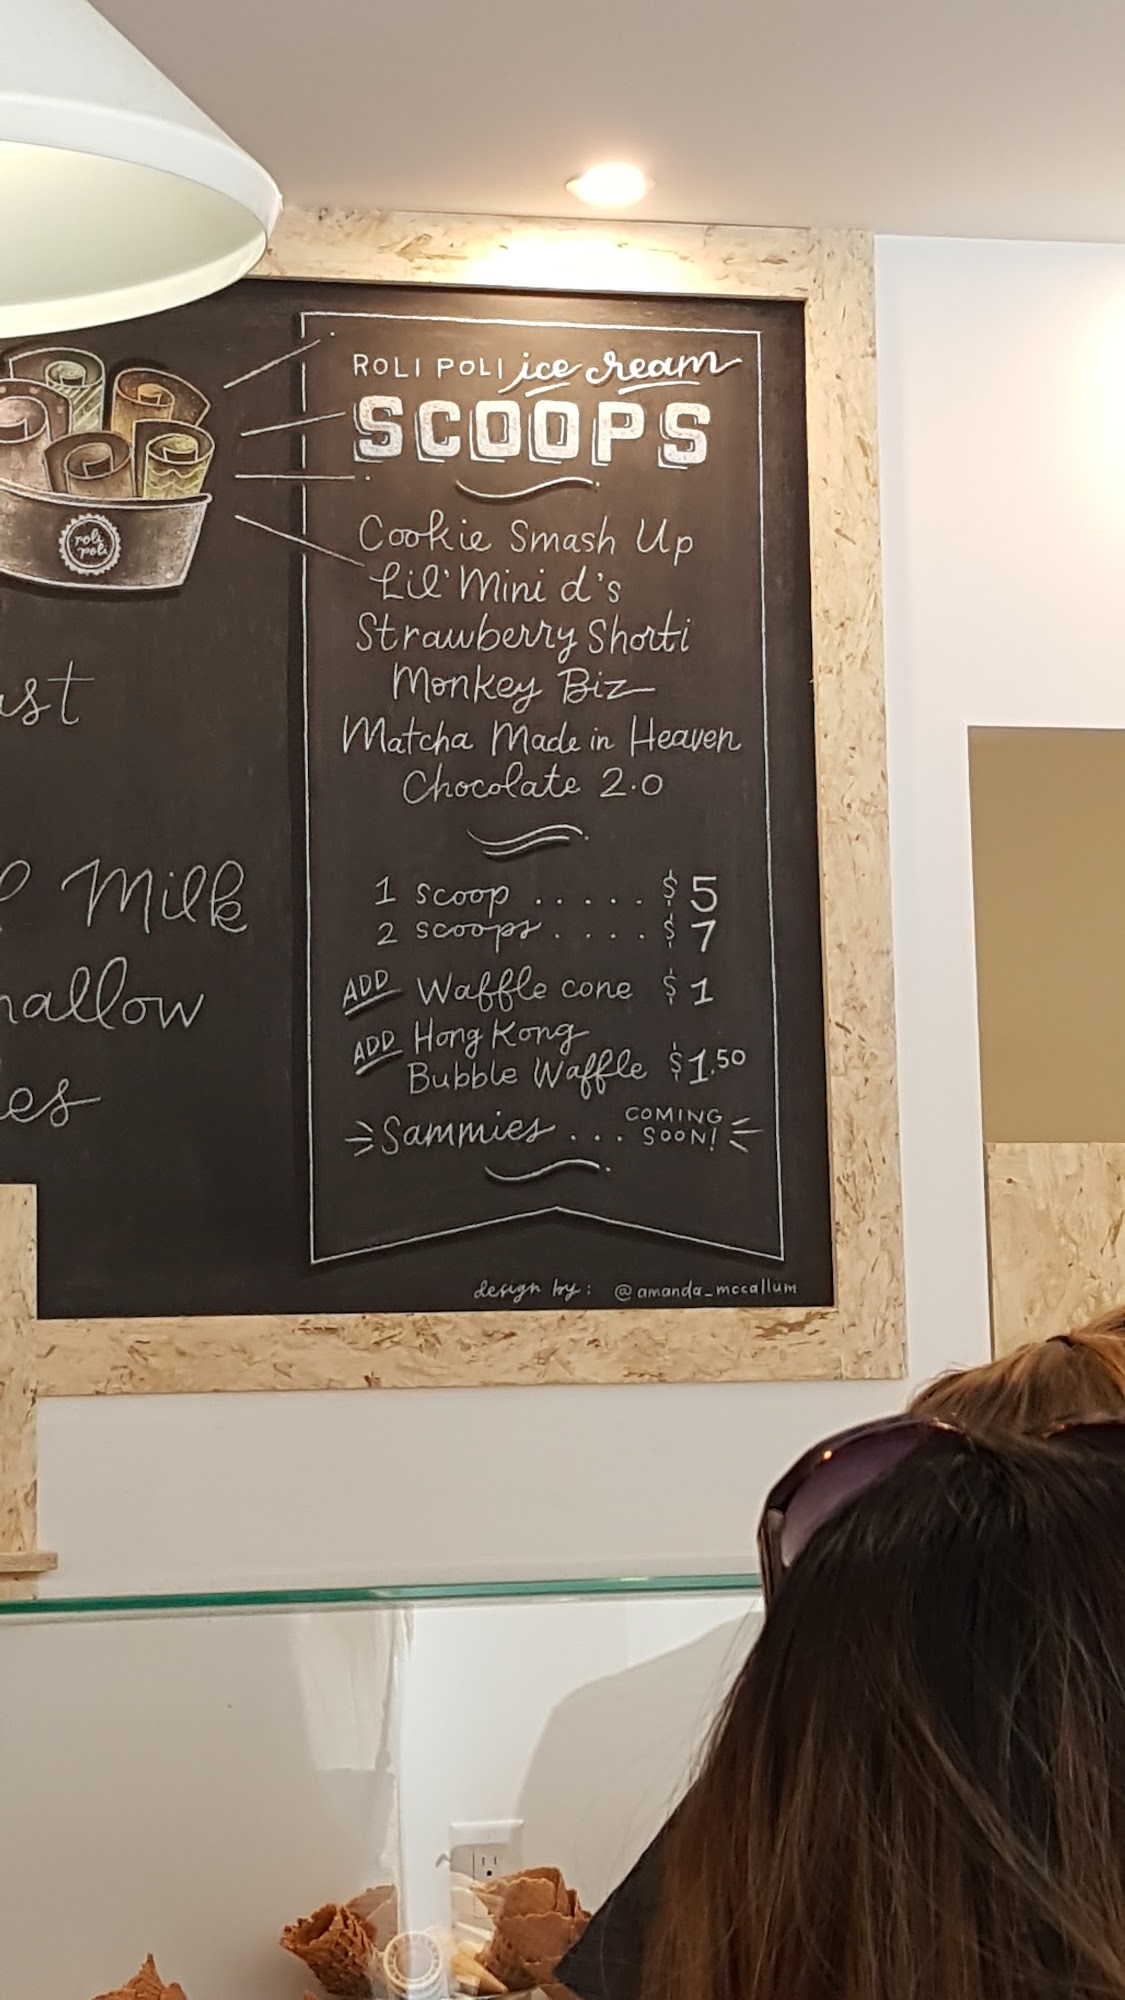 ROLI POLI ice cream
SCOOPS
Cookie Smash Up
Lil' Mini d's
Strawberry Shorti
Monkey Biz
Matcha Made in Heaven
Chocolate 2.0
1 scoop ..... $5
2 scoops .... $7
ADD Waffle cone $1
ADD Hong Kong
Bubble Waffle $1.50
Sammies ... COMING
SOON!
design by: @amanda_mccallum
roli
poli
Milk